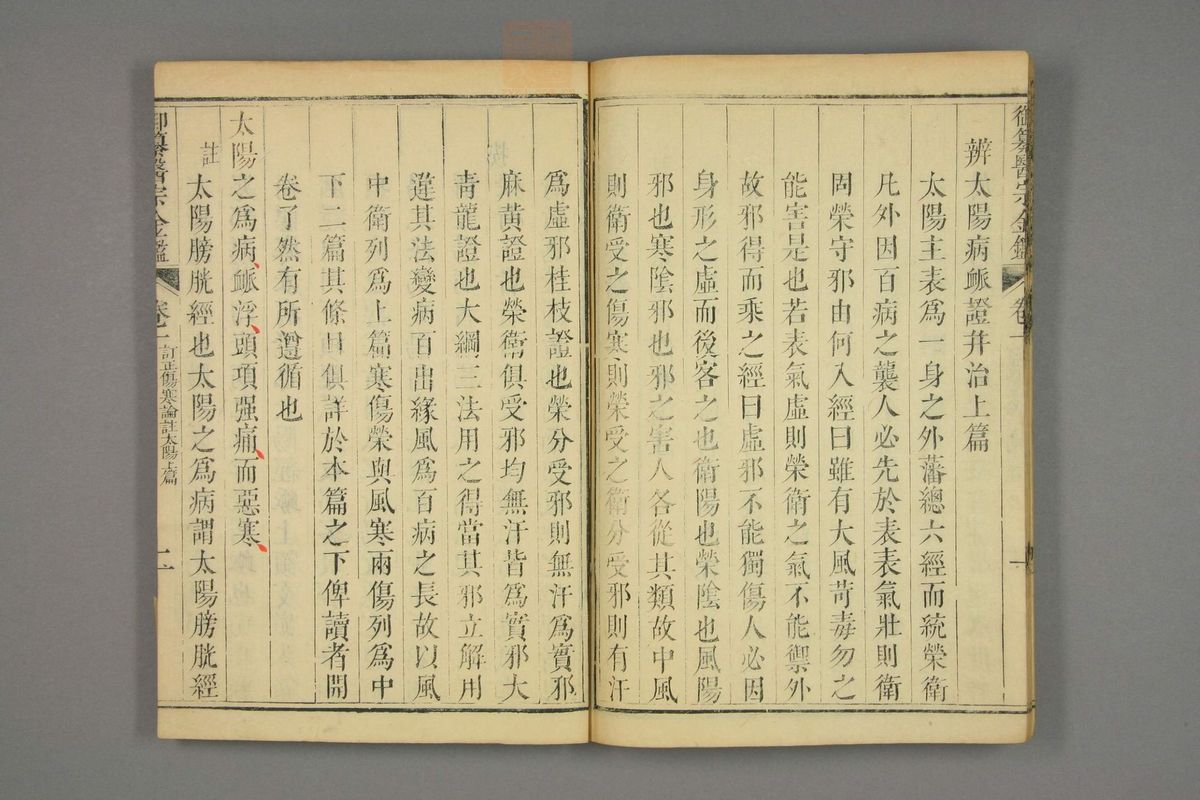 御纂醫宗金鑑 卷一
辨太陽病脈證并治上篇
太陽主表爲一身之外藩總六經而統榮衛
凡外因百病之襲人必先於表表氣壯則衛
固榮守邪由何入經曰雖有大風苛毒勿之
能害是也若表氣虛則榮衛之氣不能禦外
故邪得而乘之經曰虛邪不能獨傷人必因
身形之虛而後客之也衛陽也榮陰也風陽
邪也寒陰邪也邪之害人各從其類故中風
則衛受之傷寒則榮受之衛分受邪則有汗
爲虛邪桂枝證也榮分受邪則無汗爲實邪
麻黃證也榮衛俱受邪均無汗皆爲實邪大
青龍證也大綱三法用之得當其邪立解用
違其法變病百出緣風爲百病之長故以風
中衛列爲上篇寒傷榮與風寒兩傷列爲中
下二篇其條目俱詳於本篇之下俾讀者開
卷了然有所遵循也
太陽之爲病脈浮頭項强痛而惡寒
註 太陽膀胱經也太陽之爲病謂太陽膀胱經
御纂醫宗金鑑 卷一 訂正傷寒論註太陽上篇